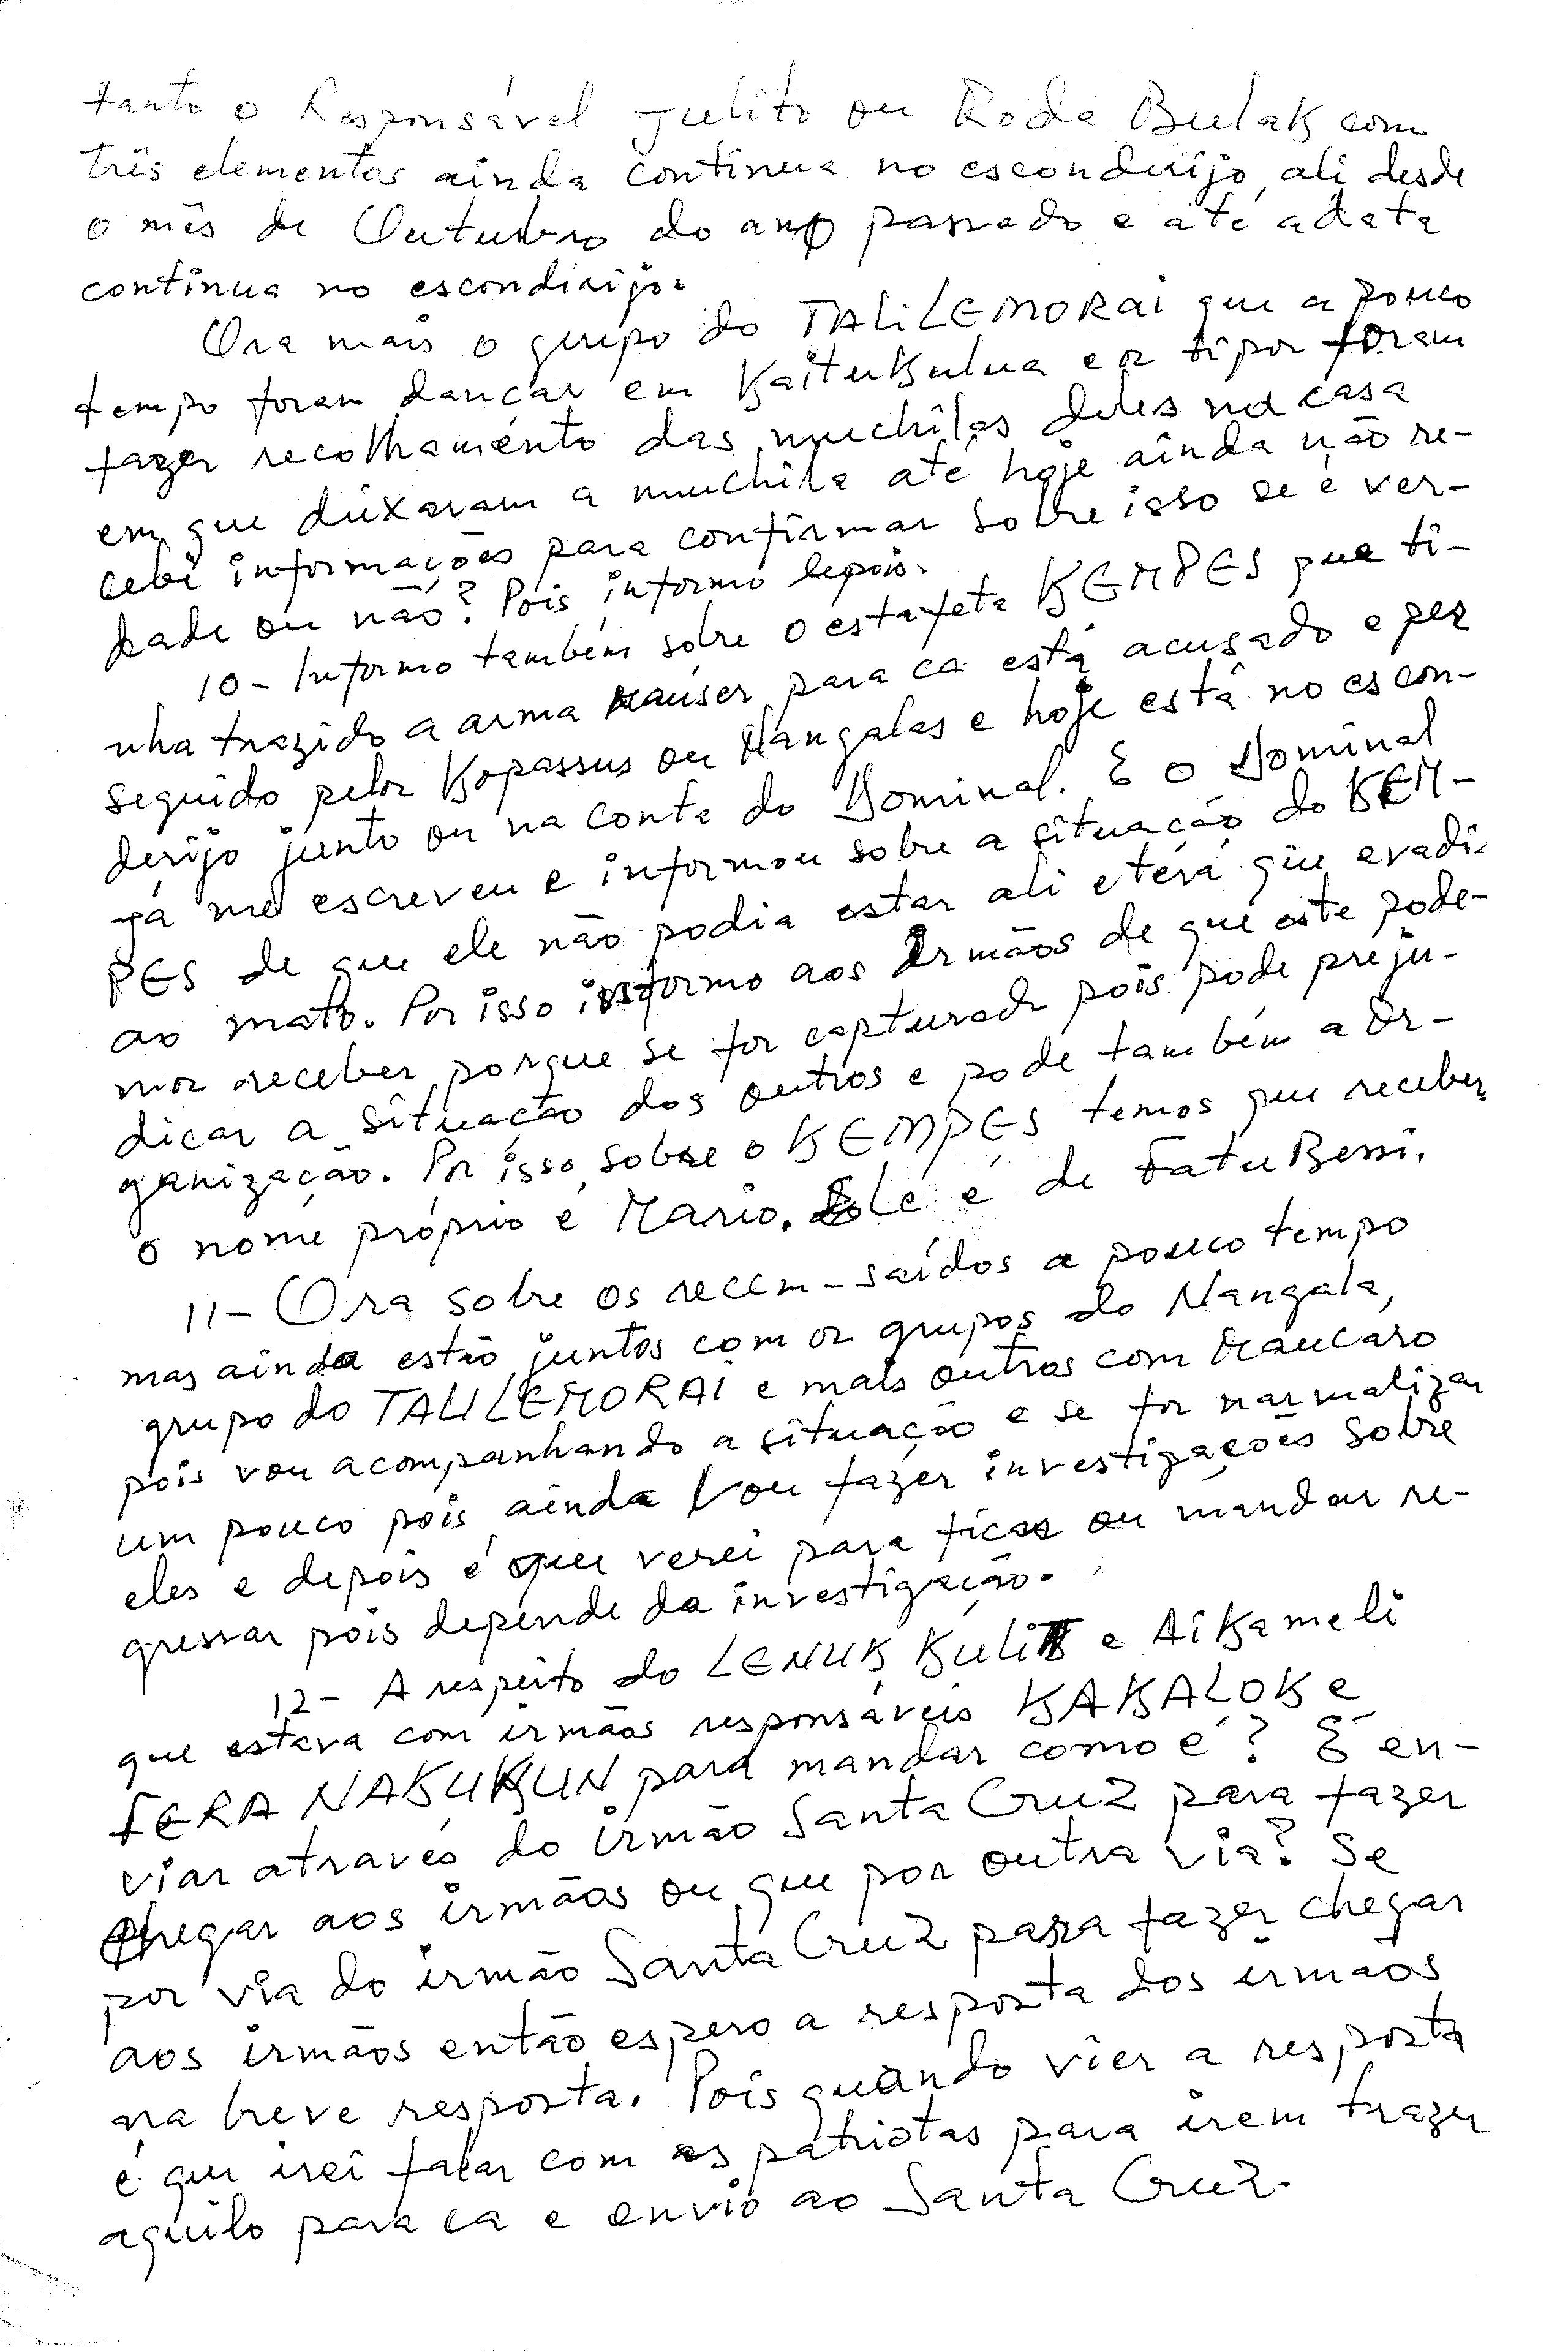 tanto o Responsável Julito ou Roda Bulak com
três elementos ainda continua no esconderijo, ali desde
o mês de Outubro do ano passado e até a data
continua no escondirijo.
Ora mais o grupo do TALILEMORAI que a pouco
tempo foram dançar em Kaitukulua e os tipos foram
fazer recolhamento das muchilas deles na casa
em que deixaram a muchila até hoje ainda não re-
cebi informações para confirmar sobre isso se é ver-
dade ou não? Pois, informo depois.
10 - Informo também sobre o estafeta KEMPES que ti-
nha trazido a arma mauser para ca está acusado e per
seguido pelos Kopassus ou Nangalas e hoje está no escon-
derijo junto ou na conta do Dominal. E o Dominal
já me escreveu e informou sobre a situação do KEM-
PES de que ele não podia estar ali e terá que evadir
ao mato. Por isso informo aos Irmãos de que este pode-
mos receber porque se for capturado pois pode preju-
dicar a situação dos outros e pode também a Or-
ganização. Por isso, sobre o KEMPES temos que receber,
o nome próprio é Mario. Ele é de Fatu Bessi.
11 - Ora sobre os recem-saídos a pouco tempo
mas ainda estão juntos com os grupos do Nangala,
grupo do TALILEMORAI e mais outros com Maucaro
pois vou acompanhando a situação e se for normalizar
um pouco pois ainda vou fazer investigações sobre
eles e depois é que verei para ficar ou mandar re-
gressar pois depende da investigação.
12 - A respeito do LENUK KULIT e Aikameli
que estava com irmãos responsáveis KAKALOK e
FERA NAKUKUN para mandar como é? É en-
viar através do irmão Santa Cruz para fazer
chegar aos irmãos ou que por outra via? Se
por via do irmão Santa Cruz para fazer chegar
aos irmãos então espero a resposta dos irmãos
na breve resposta. Pois quando vier a resposta
é que irei falar com as patriotas para irem trazer
aquilo para ca e envio ao Santa Cruz.